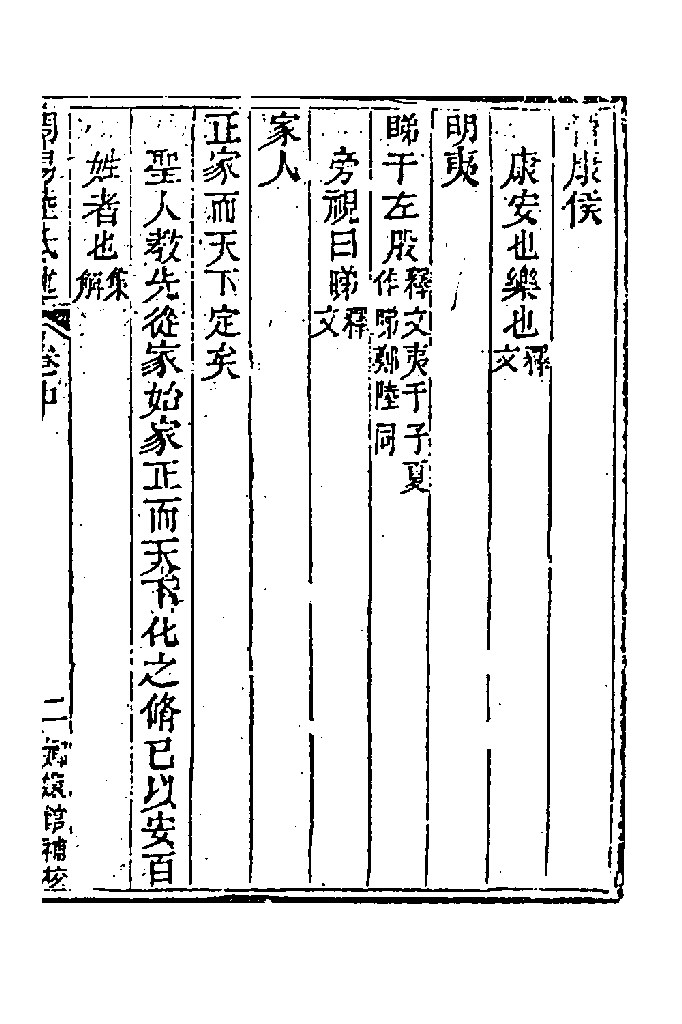 晉康侯
康安也樂也釋文
明夷
睇于左股釋文夷于子夏作睇鄭陸同
旁視曰睇釋文
家人
正家而天下定矣
聖人教先從家始家正而天下化之脩已以安百
姓者也集解
周易陸氏述
卷中
二
補校